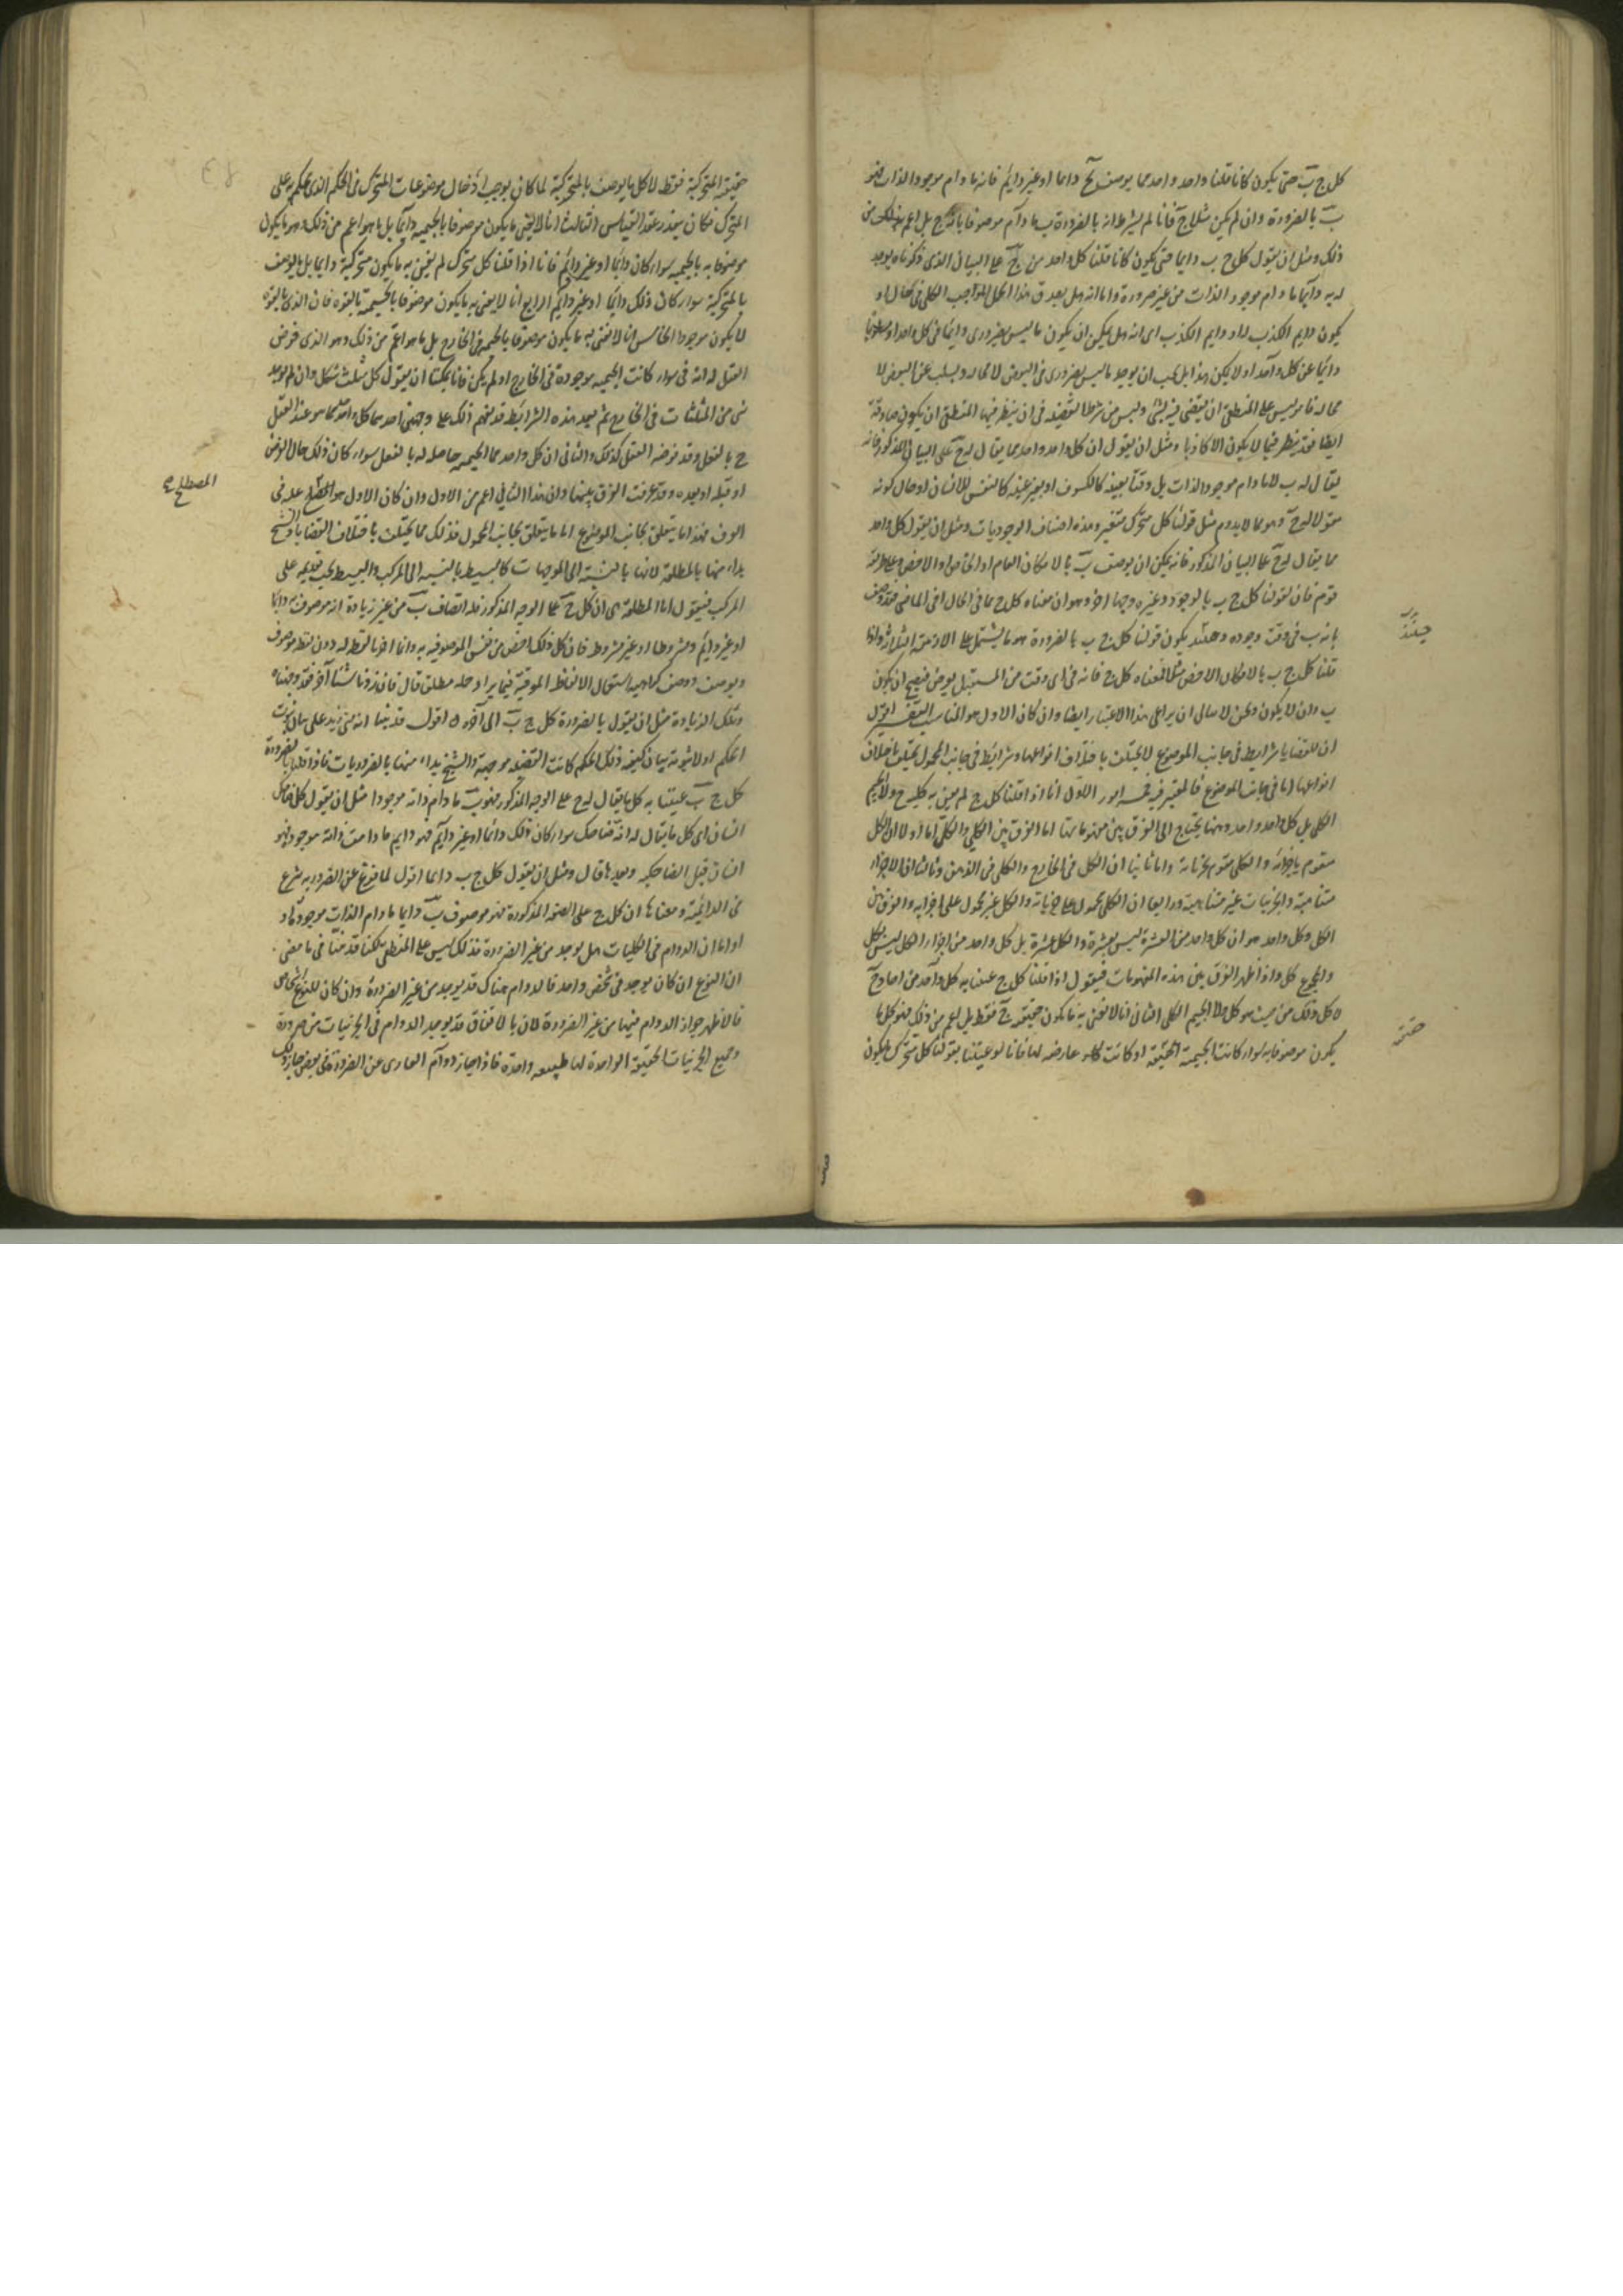 كل ج ب حتى يكون كانا قلنا واحد واحد مما يوصف بج دائما او غير دائم فانه ما دام موجود الذات فهو
ب بالضرورة وان لم يكن مثلا ج فانا لم نشترط انه بالضرورة ب ما دام موصوفا بانه ج بل اعم من
ذلك ومثل ان نقول كل ج ب دايما حتى يكون كانا قلنا كل واحد من ج على البيان الذى ذكرناه يوجد
له ب دايما ما دام موجود الذات من غير ضرورة واما انه هل يصدق هذا الحمل الموجب الكلى فى كل حال او
يكون دايم الكذب اى انه هل يمكن ان يكون ما ليس بضرورى دايما فى كل واحد او مسلوبا
دايما عن كل واحد او لا يمكن هذا بل يجب ان يوجد ما ليس بضرورى فى البعض لا محاله ويسلب عن البعض لا
محاله فامر ليس على المنطقى ان يقضى فيه بشى وليس من شرط القضيه فى ان ينظر فيها المنطقى ان يكون صادقة
ايضا فقد ينظر فيما لا يكون الا كاذبا ومثل ان نقول ان كل واحد واحد مما يقال له ج على البيان المذكور فانه
يقال له ب لا ما دام موجود الذات بل وقتا بعينه كالكسوف او بغير عينه كالتنفس للانسان او حال كونه
مقولا له ج وهو مما لا يدوم مثل قولنا كل متحرك متغير وهذه اصناف الوجوديات ومثل ان نقول كل واحد
مما يقال له ج على البيان المذكور فانه يمكن ان يوصف ب بالامكان العام او الخاص او الاخص وعلى طريقة
قوم فان لقولنا كل ج ب بالوجود وغيره وجها اخر وهو ان معناه كل ج مما فى الحال او فى الماضى فقد وصف
بانه ب فى وقت وجوده وحينئذ يكون قولنا كل ج ب بالضرورة هو ما يشتمل على الازمنة الثلاثة واذا
قلنا كل ج ب بالامكان الاخص مثلا فمعناه كل ج فانه فى اى وقت من المستقبل يفرض فيصح ان يكون
ب وان لا يكون ونحن لا نبالى ان يراعى هذا الاعتبار ايضا وان كان الاول هو المناسب التفسير اقول
ان للقضايا شرايط فى جانب الموضوع لا يختلف باختلاف انواعها وشرايط فى جانب المحمول يختلف باختلاف
انواعها اما فى جانب الموضوع فالمعتبر فيه خمسة امور الاول انا اذا قلنا كل ج لم نعن به كلية ج ولا الجيم
الكلى بل كل واحد واحد وههنا يحتاج الى الفرق بين مفهوماتها اما الفرق بين الكلى والكل اما اولا ان الكل
متقوم باجزائه والكلى مقوم لجزئياته واما ثانيا ان الكل فى الخارج والكلى فى الذهن وثالثا ان الاجزاء
متناهية والجزئيات غير متناهية ورابعا ان الكلى محمول على جزئياته والكل غير محمول على اجزائه والفرق بين
الكل وكل واحد هو ان كل واحد من العشرة ليس بعشرة والكل عشرة بل كل واحد من اجزاء الكل ليس بكل
والمجموع كل واذا ظهر الفرق بين هذه المفهومات فنقول اذا قلنا كل ج عنينا به كل واحد من احاد ج
لا كل ذلك من حيث هو كل ولا الجيم الكلى الثانى انا لا نعنى به ما يكون حقيقته ج فقط بل اعم من ذلك وهو كل ما
يكون موصوفا به سواء كانت الجيمية الحقيقة او كانت عارضه لها فانا لو عنينا بقولنا كل متحرك ما يكون
حينئذ
حقيقته المتحركية فقط لا كل ما يوصف بالمتحركية لما كان يوجب ادخال موضوعات المتحرك فى الحكم الذى يحكم به على
المتحرك فكان يتعذر عقد القياس الثالث انا لا نعنى ما يكون موصوفا بالجيميه دايما بل ما هو اعم من ذلك وهو ما يكون
موصوفا به بالجيميه سواء كان دايما او غير دايم فانا اذا قلنا كل متحرك لم نعن به ما يكون متحركية دايما بل ما يوصف
بالمتحركية سواء كان ذلك دايما او غير دايم الرابع انا لا نعنى به ما يكون موصوفا بالجيمية بالقوة فان الذى بالقوة
لا يكون موجودا الخامس انا لا نعنى به ما يكون موصوفا بالجيمية فى الخارج بل ما هو اعم من ذلك وهو الذى فرض
العقل له انه ج سواء كانت الجيميه موجودة فى الخارج او لم يكن فانا يمكننا ان نقول كل مثلث شكل وان لم يوجد
شى من المثلثات فى الخارج ثم بعد هذه الشرايط قد يفهم ذلك على وجهين احدهما كل واحد مما هو عند العقل
ج بالفعل وقد فرضه العقل كذلك والثانى ان كل واحد مما الجيميه حاصله له بالفعل سواء كان ذلك حال الفرض
او قبله او بعده وقد عرفت الفرق بينهما وان هذا الثانى اعم من الاول وان كان الاول هو المصطلح عليه فى
المصطلح
العرف فهذا ما يتعلق بجانب الموضوع اما ما يتعلق بجانب المحمول فذلك مما يختلف باختلاف القضايا والشيخ
بداء منها بالمطلقة لانها بالنسبة الى الموجهات كالبسيط بالنسبه الى المركب والبسيط يجب تقديمه على
المركب فنقول اما المطلقة هى ان كل ج على الوجه المذكور فله اتصاف ب من غير زيادة انه موصوف به دايما
او غير دايم ومشروطا او غير مشروط فان كل ذلك اخص من نفس الموصوفيه به
وتلك الزيادة مثل ان نقول بالضرورة كل ج ب الى آخره اقول قد بينا انه متى زيد على بيان ثبوت
الحكم او لا ثبوته بيان كيفية ذلك الحكم كانت القضيه موجهة والشيخ بداء منها بالضروريات فاذا قلنا بالضرورة
كل ج ب عنينا به كل ما يقال له ج على الوجه المذكور فهو ب ما دام ذاته موجودا مثل ان نقول كل ضاحك
انسان اى كل ما يقال له انه ضاحك سواء كان ذلك دائما او غير دايم فهو دايم ما دامت ذاته موجودة فهو
انسان قبل الضاحكيه وبعدها قال ومثل ان نقول كل ج ب دائما اقول لما فرغ عن الضروريه شرع
فى الدائمية ومعناها ان كل ج على الصفة المذكورة فهو موصوف بب دايما ما دام الذات موجودة
واما ان الدوام فى الكليات هل يوجد من غير الضرورة فذلك ليس على المنطقى لكنا قد بينا فى ما مضى
ان النوع ان كان يوجد فى شخص واحد فالدوام هناك قد يوجد من غير الضرورة وان كان للنوع اشخاص
فالاظهر جواز الدوام فيها من غير الضرورة لان بالاتفاق قد يوجد الدوام فى الجزئيات من غير ضرورة
وجميع الجزئيات الحقيقة الواحدة لها طبيعه واحدة فاذا جاز دوام العارى عن الضرورة فى بعض جاز ذلك